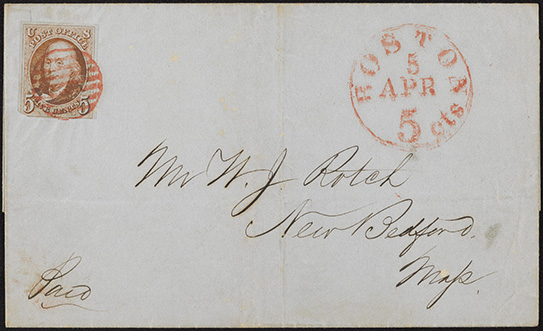 U S
POST OFFICE
5 FIVE CENTS 5
BOSTON
5
APR
5 cts
Mr W. J. Rotch
New Bedford.
Mass.
Paid